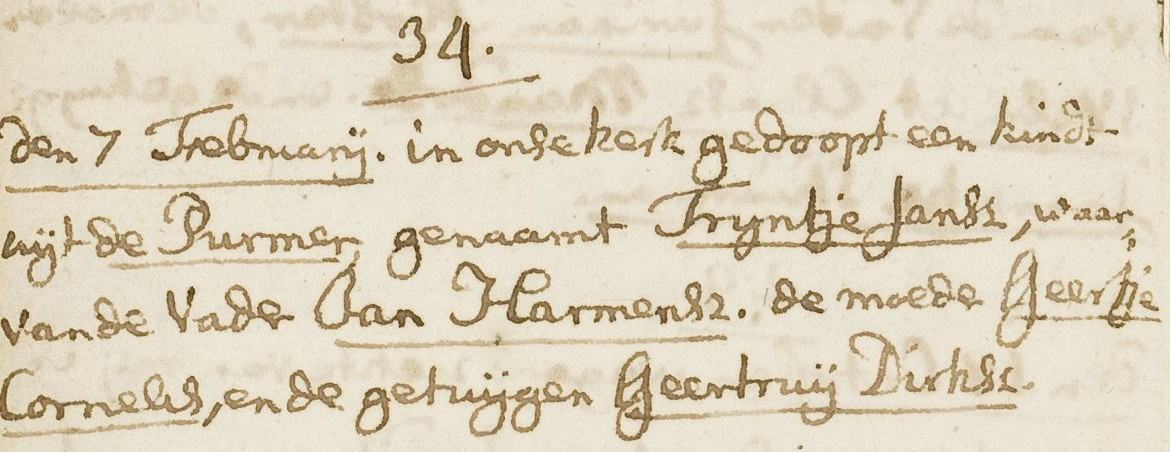 34.
den 7 Febrúarij. in onse kerk gedoopt een kindt
uijt de Purmer, genaamt Tryntje Jansz, waar,
van de Vader Jan Harmensz. de moeder Geertje
Cornelis, en de getuijgen Geertruij Dirksz.